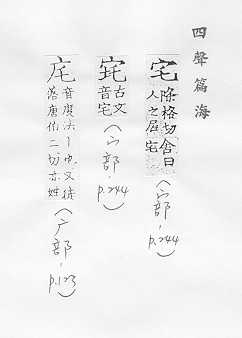 四聲篇海
宅
除格切舍曰
人之居宅
(宀部,
p.244)
古文
音宅
(宀部,
p.244)
㡯
音度法丨也又徒
落唐佑二切亦姓
(广部,
p.123)